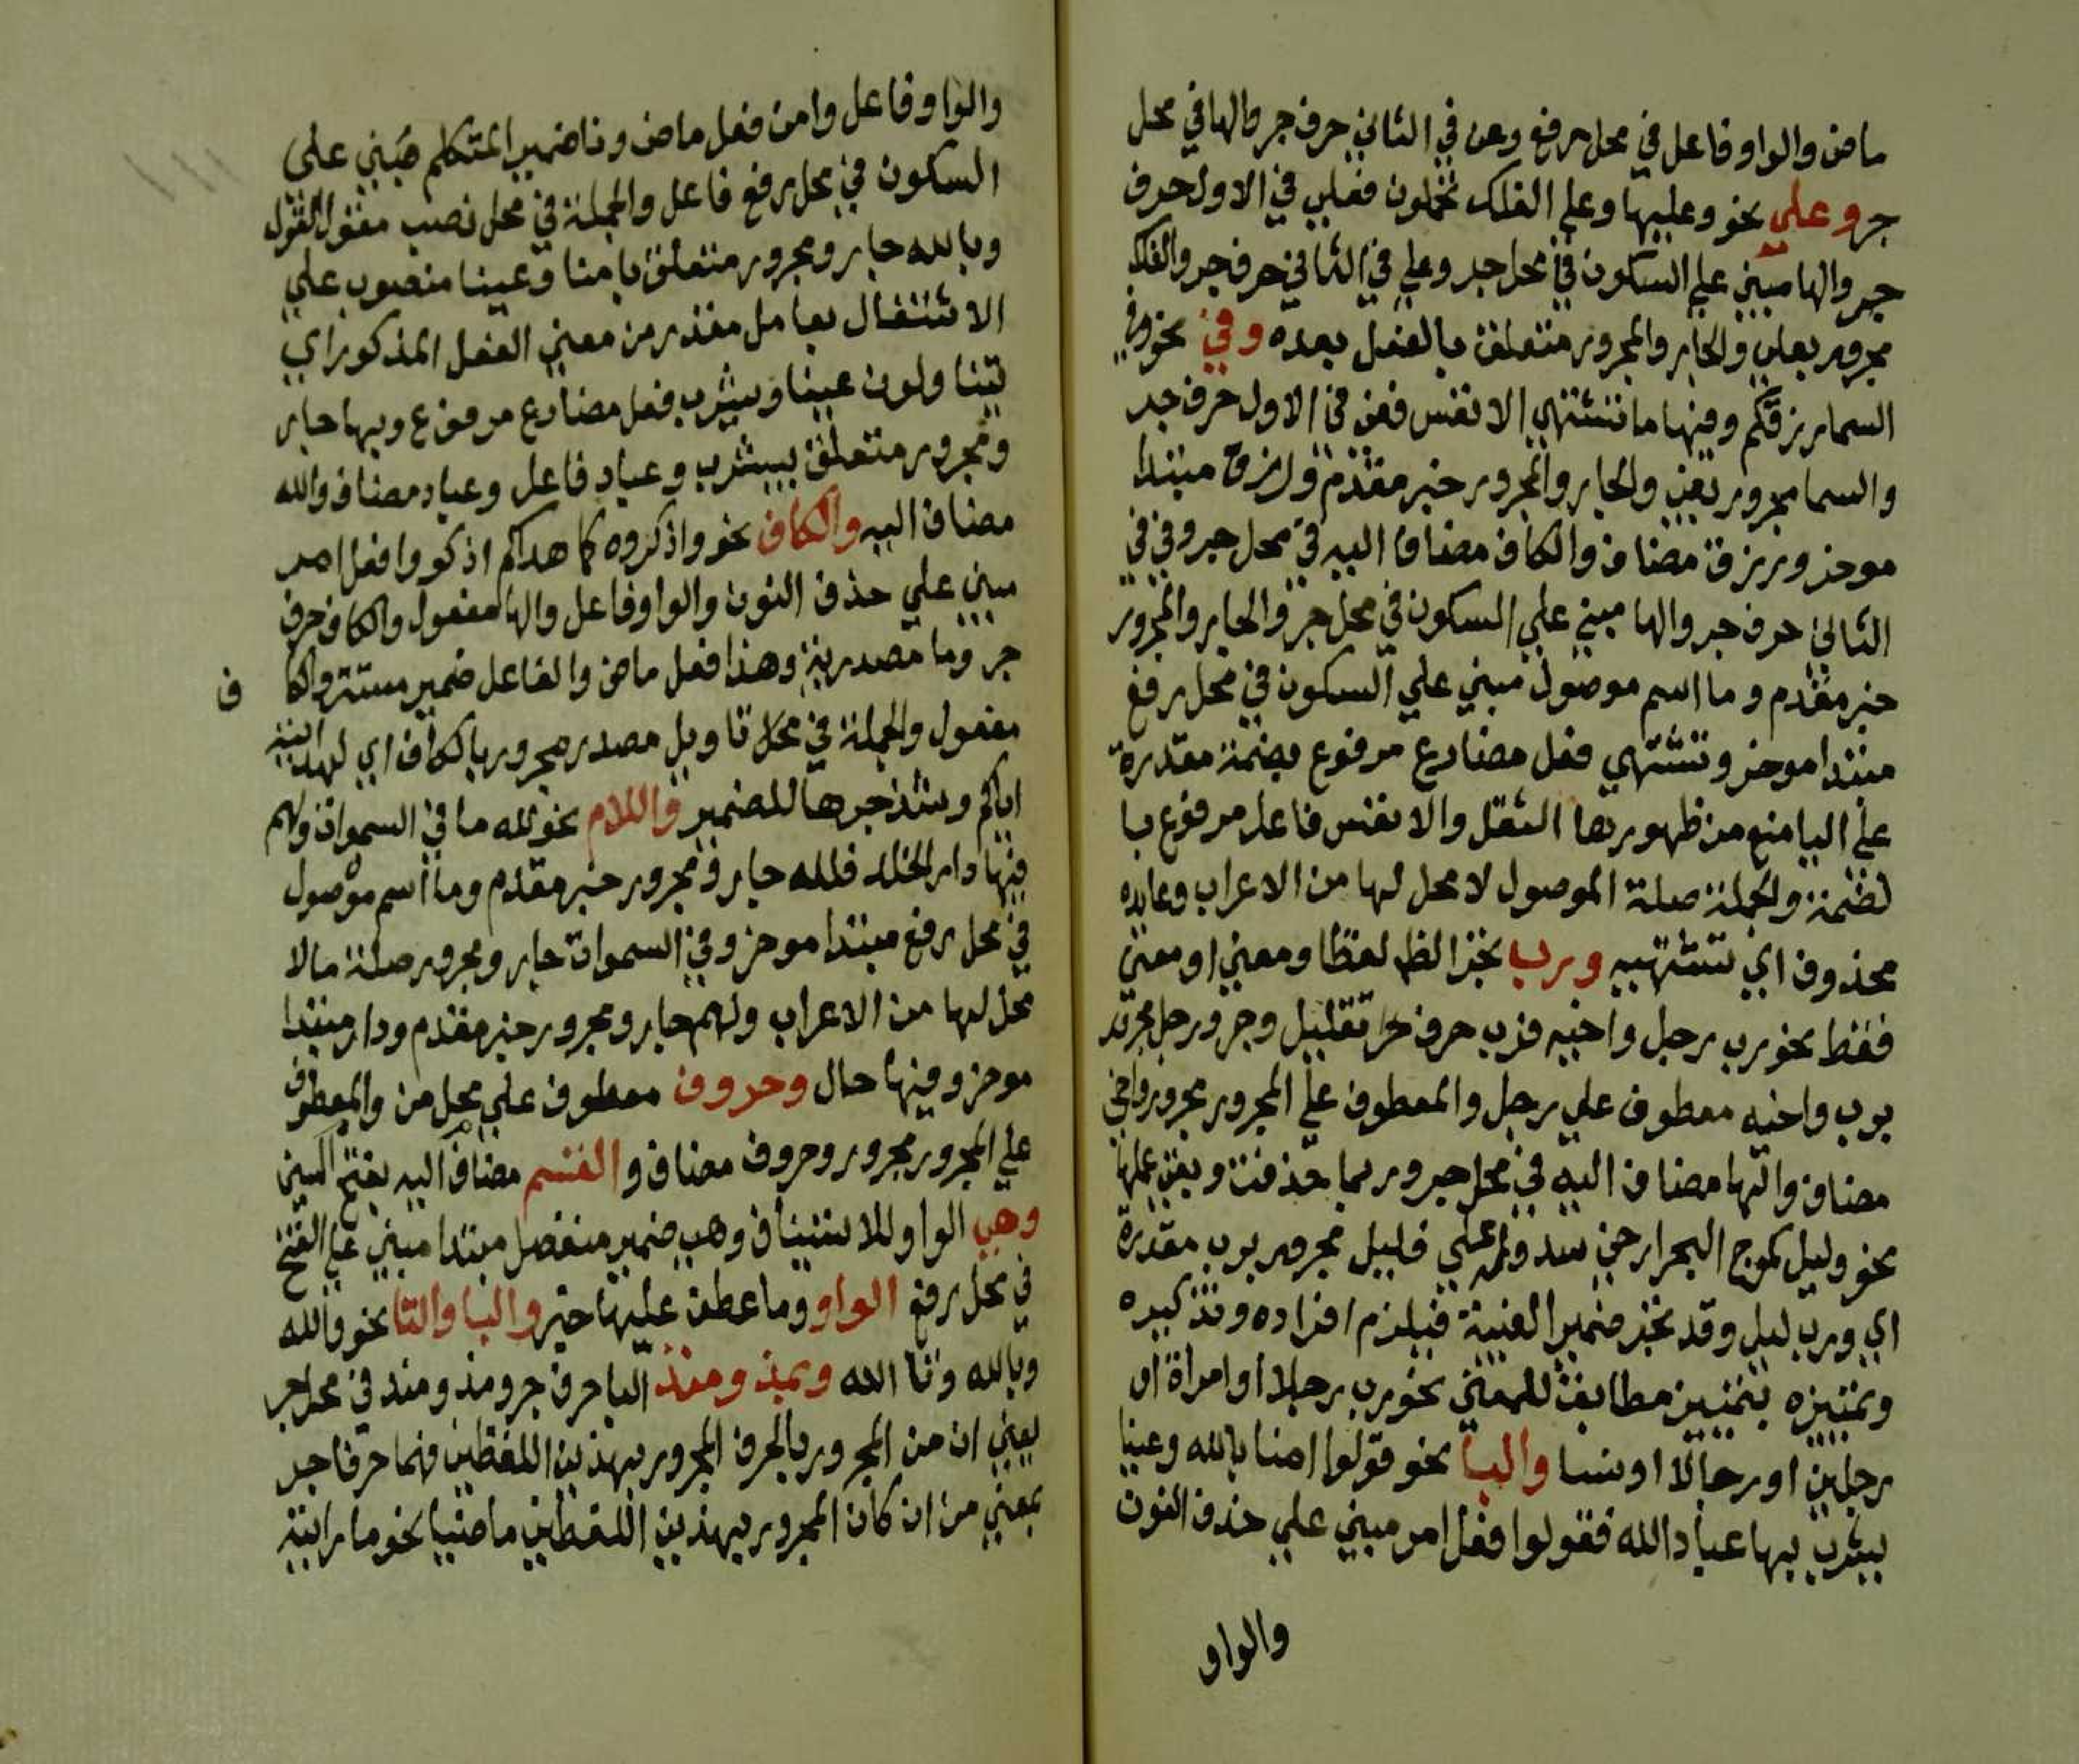 ماض والواو فاعل في محل رفع وعن في الثاني حرف جر والها في محل
جر وعلي نحو وعليها وعلي الفلك تحملون فعلي في الاول حرف
جر والها مبني علي السكون في محل جر وعلي في الثاني حرف جر والفلك
مجرور بعلي والجار والمجرور متعلق بالفعل بعده وفي نحو وفي
السما رزقكم وفيها ما تشتهي الانفس ففي في الاول حرف جر
والسما مجرور بفي والجار والمجرور خبر مقدم ورزق مبتدا
موخر ورزق مضاف والكاف مضاف اليه في محل جر وفي في
الثاني حرف جر والها مبني علي السكون في محل جر والجار والمجرور
خبر مقدم وما اسم موصول مبني علي السكون في محل رفع
مبتدا موخر وتشتهي فعل مضارع مرفوع بضمة مقدرة
علي اليا منع من ظهورها الثقل والانفس فاعل مرفوع با
لضمة والجملة صلة الموصول لا محل لها من الاعراب وعايده
محذوف اي تشتهيه ورب بجر الظ لفظا ومعني او معني
فقط نحو رب رجل واخيه فرب حرف جر تقليل وجر ورجل مجرور
برب واخيه معطوف علي رجل والمعطوف علي المجرور مجرور واخي
مضاف والها مضاف اليه في محل جر وربما حذفت وبقي عملها
نحو وليل كموج البحر ارخي سدوله علي فليل مجرور برب مقدرة
اي ورب ليل وقد تجر ضمير الغيبة فيلزم افراده وتذكيره
وتمييزه بتمييز مطابق للمعني نحو ربه رجلا او امراة او
رجلين او رجالا او نسا والبا نحو قولوا امنا بالله وعينا
يشرب بها عباد الله فقولوا فعل امر مبني علي حذف النون
والواو
والواو فاعل وامن فعل ماض ونا ضمير المتكلم مبني علي
السكون في محل رفع فاعل والجملة في محل نصب مقول القول
وبالله جار ومجرور متعلق بامنا وعينا منصوب علي
الاشتغال بعامل مقدر من معني الفعل المذكور اي
يتناولون عينا ويشرب فعل مضارع مرفوع وبها جار
ومجرور متعلق بيشرب وعباد فاعل وعباد مضاف والله
مضاف اليه والكاف نحو واذكروه كما هداكم اذكروا فعل امر
مبني علي حذف النون والواو فاعل والها مفعول والكاف حرف
جر وما مصدرية وهدا فعل ماض والفاعل ضمير مستتر والكا
ف
مفعول والجملة في محل تاويل مصدر مجرور بالكاف اي لهدايته
اياكم وشذ جرها للضمير واللام نحو لله ما في السموات ولهم
فيها دار الخلد فلله جار ومجرور خبر مقدم وما اسم موصول
في محل رفع مبتدا موخر وفي السموات جار ومجرور صلة ما لا
محل لها من الاعراب ولهم جار ومجرور خبر مقدم ودار مبتدا
موخر وفيها حال وحروف معطوف علي محل من والمعطوف
علي المجرور مجرور وحروف مضاف والقسم مضاف اليه بفتح السين
وهي الواو للاستيناف وهي ضمير منفصل مبتدا مبني علي الفتح
في محل رفع الواو وما عطف عليها خبر والبا والتا نحو والله
وبالله وتا الله وبمذ ومنذ البا حرف جر ومذ ومنذ في محل جر
يعني ان من المجرور بالحرف المجرور بهذين اللفظين فهما حرفا جر
بمعني من ان كان المجرور بهذين اللفظين ماضيا نحو ما رايته